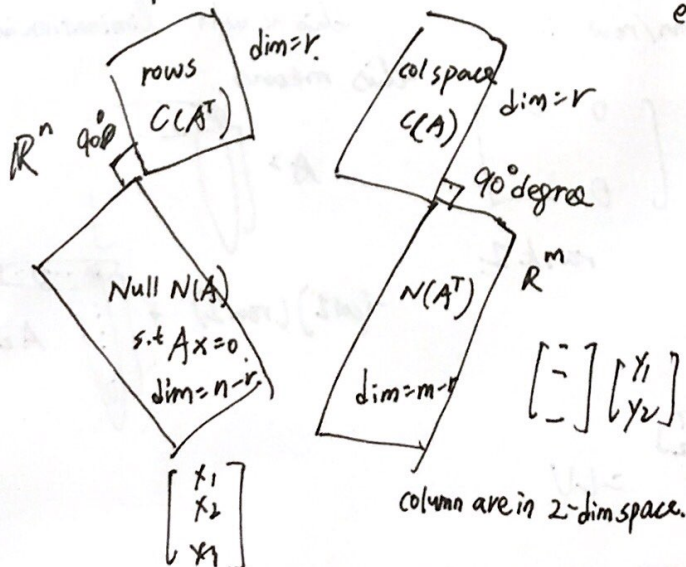 rows
C(Aᵀ)
dim=r.
Rⁿ
90°
Null N(A)
s.t Ax=0.
dim=n-r.
[x₁
x₂
x₃]
col space
C(A)
dim=r
90° degree
N(Aᵀ)
Rᵐ
dim=m-r
[y₁
y₂]
column are in 2-dim space.
e